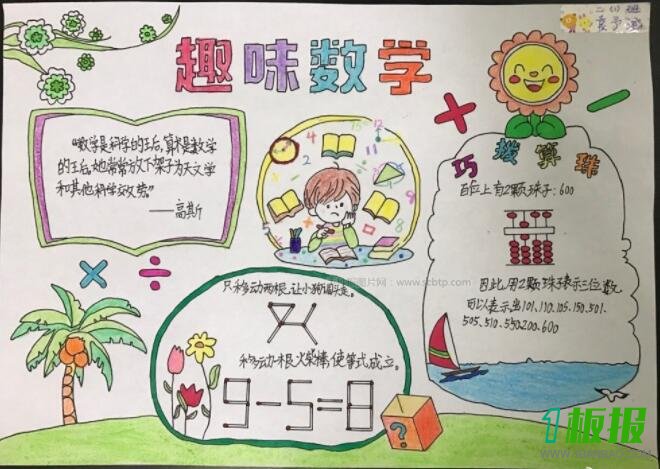 二(1)班
趣味数学
"数学是科学的王后,算术是数学
的王后,她常常放下架子为天文学
和其他科学效劳。"
——高斯
巧拨算珠
百位上有2颗珠子:600
因此,用2颗珠子表示三位数,
可以表示出101、110、105、150、501、
505、510、550、200、600
只移动两根,让小狗调头走。
移动一根火柴棒,使等式成立。
9-5=8
?
板报